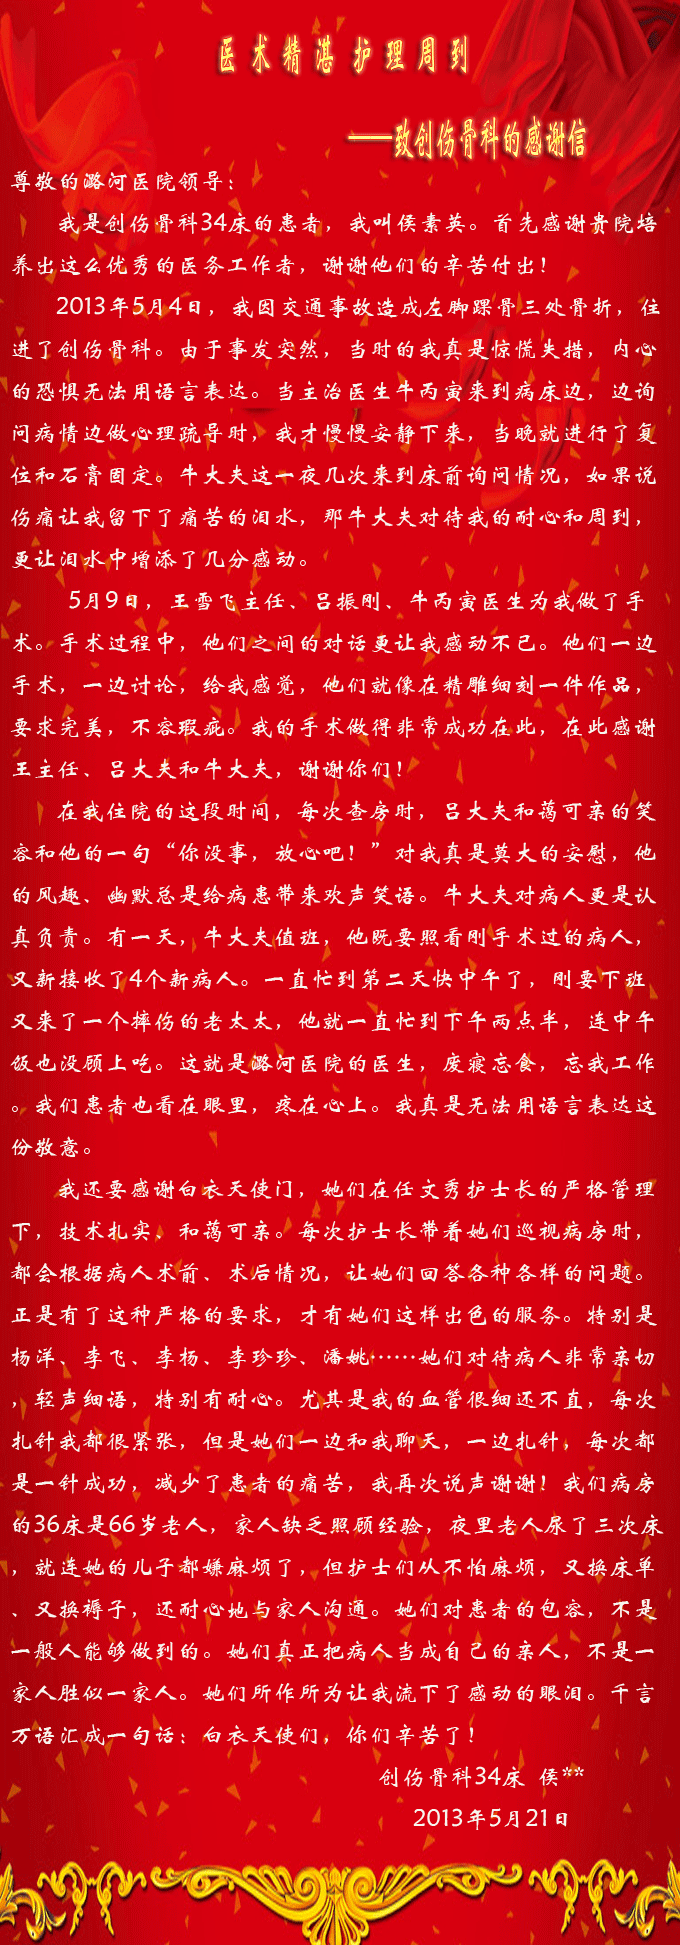 医术精湛 护理周到
——致创伤骨科的感谢信
尊敬的潞河医院领导：
我是创伤骨科34床的患者，我叫侯素英。首先感谢贵院培
养出这么优秀的医务工作者，谢谢他们的辛苦付出！
2013年5月4日，我因交通事故造成左脚踝骨三处骨折，住
进了创伤骨科。由于事发突然，当时的我真是惊慌失措，内心
的恐惧无法用语言表达。当主治医生牛丙寅来到病床边，边询
问病情边做心理疏导时，我才慢慢安静下来，当晚就进行了复
位和石膏固定。牛大夫这一夜几次来到床前询问情况，如果说
伤痛让我留下了痛苦的泪水，那牛大夫对待我的耐心和周到，
更让泪水中增添了几分感动。
5月9日，王雪飞主任、吕振刚、牛丙寅医生为我做了手
术。手术过程中，他们之间的对话更让我感动不已。他们一边
手术，一边讨论，给我感觉，他们就像在精雕细刻一件作品，
要求完美，不容瑕疵。我的手术做得非常成功在此，在此感谢
王主任、吕大夫和牛大夫，谢谢你们！
在我住院的这段时间，每次查房时，吕大夫和蔼可亲的笑
容和他的一句“你没事，放心吧！”对我真是莫大的安慰，他
的风趣、幽默总是给病患带来欢声笑语。牛大夫对病人更是认
真负责。有一天，牛大夫值班，他既要照看刚手术过的病人，
又新接收了4个新病人。一直忙到第二天快中午了，刚要下班
又来了一个摔伤的老太太，他就一直忙到下午两点半，连中午
饭也没顾上吃。这就是潞河医院的医生，废寝忘食，忘我工作
。我们患者也看在眼里，疼在心上。我真是无法用语言表达这
份敬意。
我还要感谢白衣天使门，她们在任文秀护士长的严格管理
下，技术扎实、和蔼可亲。每次护士长带着她们巡视病房时，
都会根据病人术前、术后情况，让她们回答各种各样的问题。
正是有了这种严格的要求，才有她们这样出色的服务。特别是
杨洋、李飞、李杨、李珍珍、潘姚……她们对待病人非常亲切
，轻声细语，特别有耐心。尤其是我的血管很细还不直，每次
扎针我都很紧张，但是她们一边和我聊天，一边扎针，每次都
是一针成功，减少了患者的痛苦，我再次说声谢谢！我们病房
的36床是66岁老人，家人缺乏照顾经验，夜里老人尿了三次床
，就连她的儿子都嫌麻烦了，但护士们从不怕麻烦，又换床单
、又换褥子，还耐心地与家人沟通。她们对患者的包容，不是
一般人能够做到的。她们真正把病人当成自己的亲人，不是一
家人胜似一家人。她们所作所为让我流下了感动的眼泪。千言
万语汇成一句话：白衣天使们，你们辛苦了！
创伤骨科34床 侯**
2013年5月21日